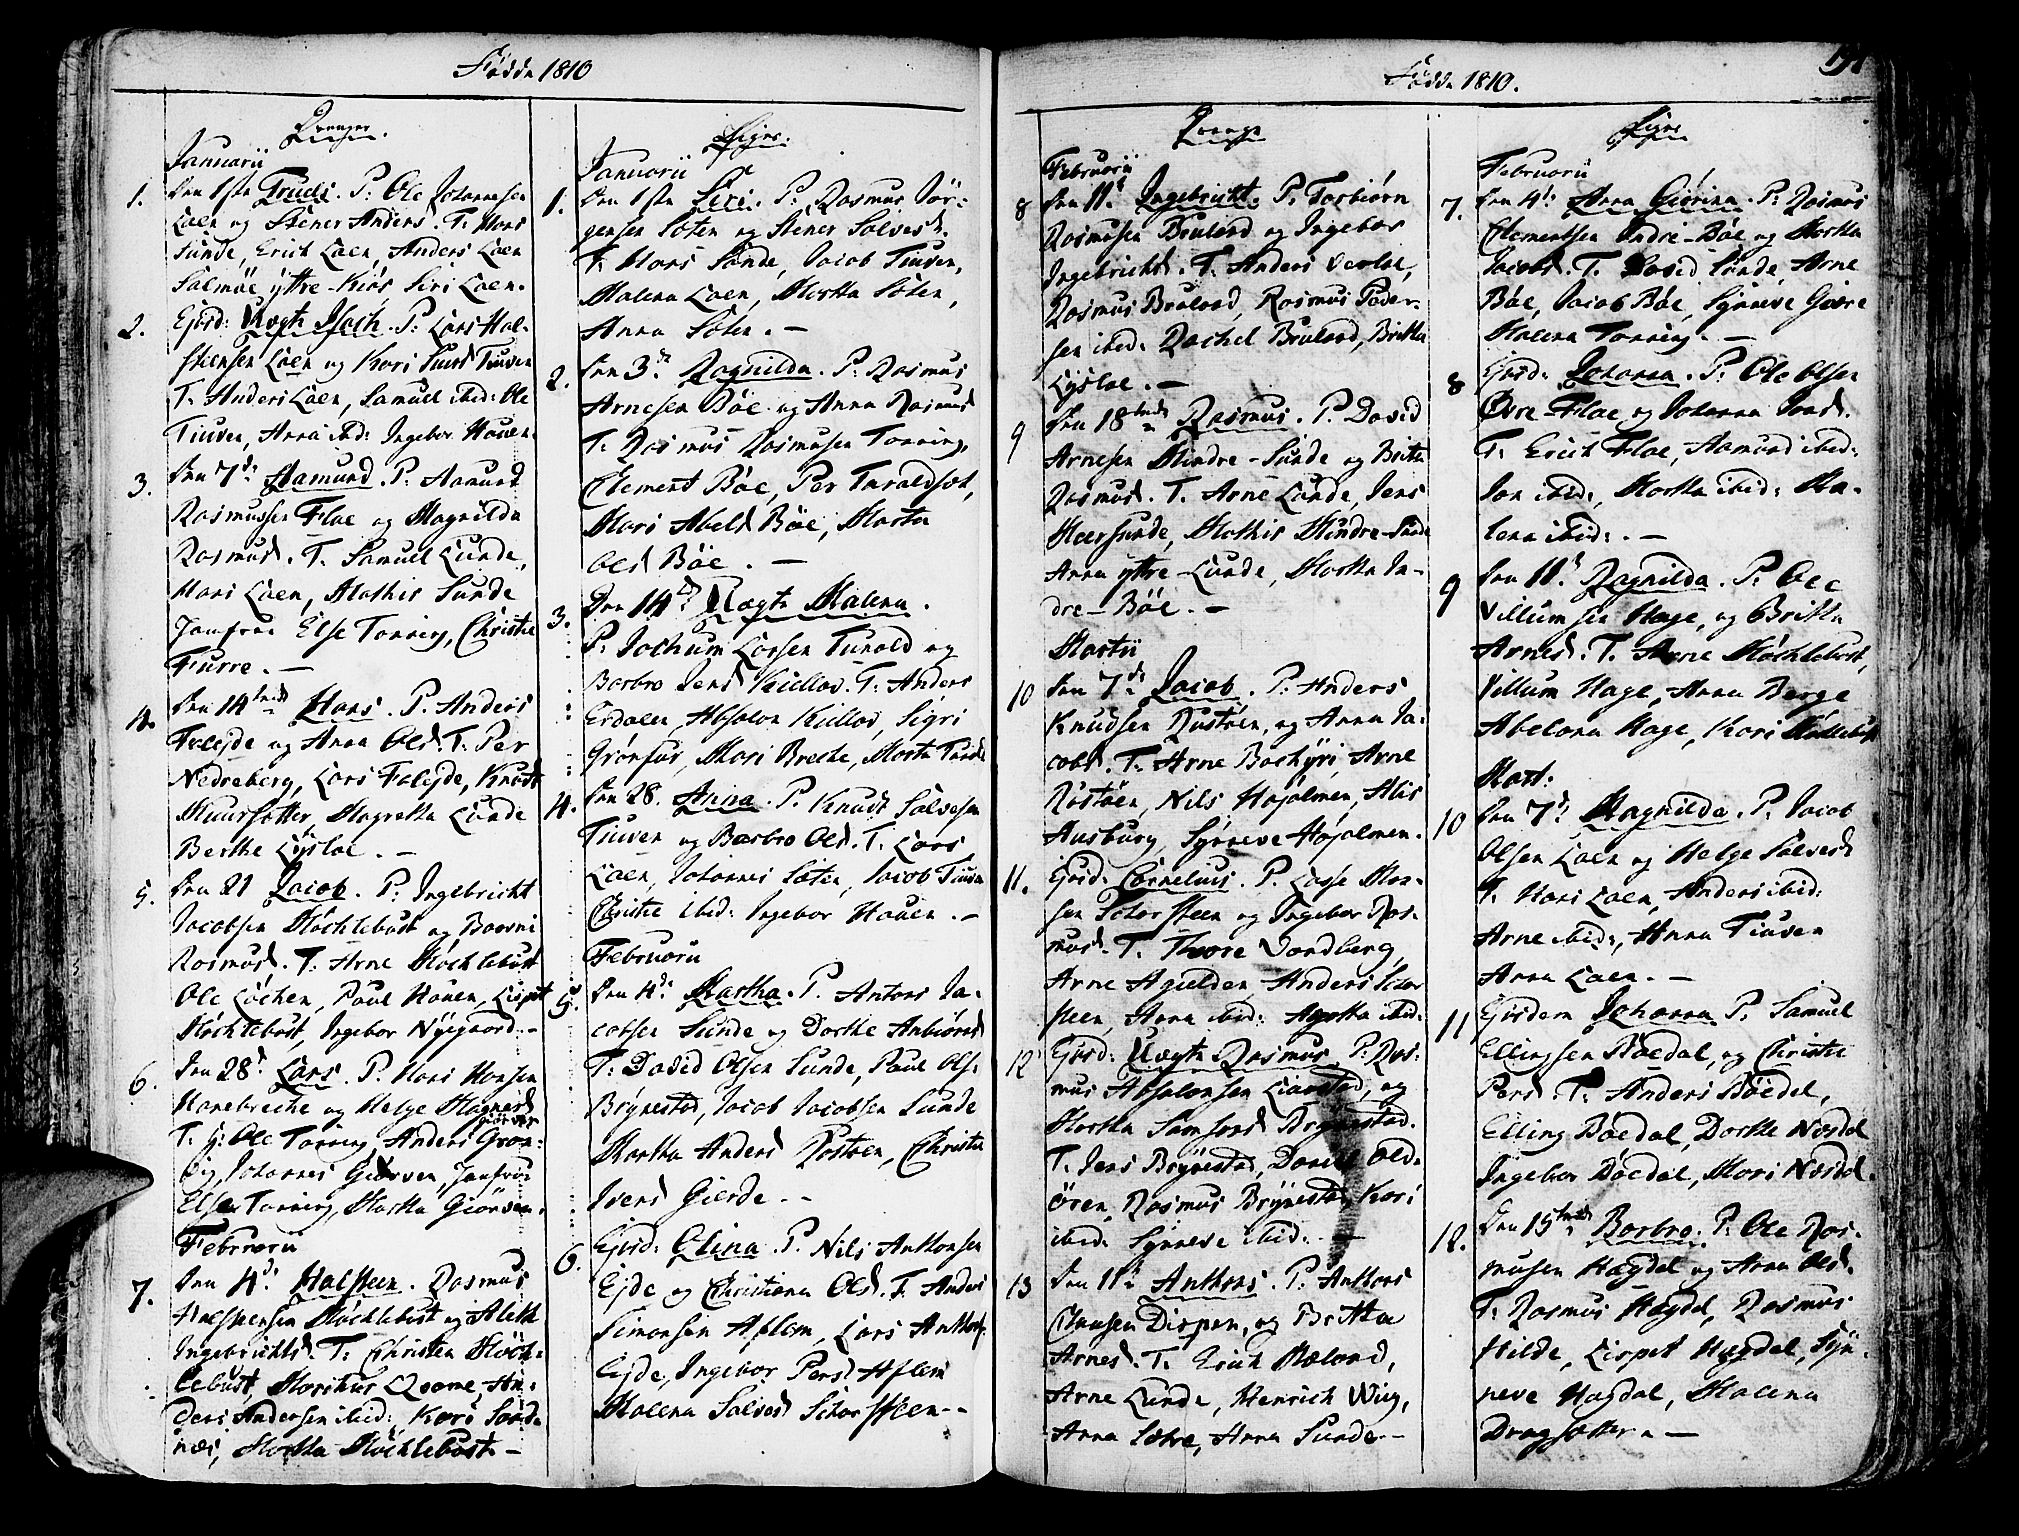 Fødde 1810
Drenger.
Januarii
1. Den 1ste Truels. P: Ole Johannesen
Loen og Stener Anders. T: Hans
Sunde, Erich Loen, Anders Loen
Salmøe yttre-Kiøs Siri Loen.
2. Ejusd: Uægte Isach. P: Lars Hal-
steensen Loen og Kari Tiuven
T: Anders Loen, Samuel ibid: Ole
Tiuven, Anna ibid: Ingebor Houen.
3. Den 7de Aamund. P: Aamund
Rasmussen Floe og Magnilda
Rasmusd. T. Samuel Lunde,
Hans Loen, Mathis Sunde
Jomfrue Else Tonning, Christi
Furre. —
4. Den 14tende Hans. P. Anders
Folejde og Anna Olsd. T: Per
Nedreberg, Lars Folejde, Knudt
Muursetter, Magretha Lunde
Berthe Lysloe. —
5. Den 21 Jacob. P: Ingebricht
Jacobsen Møchlebust og Baarni
Rasmusd. T: Arne Møchlebust
Ole Løchen, Paul Houen, Lispet
Møchlebust, Ingebor Nygaard. —
6. Den 28de Lars. P. Hans Hansen
Hanebreche og Helge Magnesd
T: Ole Tonning, Anders Gron-
Johannes Giørven, Jomfrue
Else Tonning, Martha Giørven.
Februarii
7. Den 4de Halsteen. Rasmus
Halsteensen Møchlebust og Aleth
Ingebrichtsd. T: Christen Møch-
lebust, Marithus Qvame, An-
ders Andersen ibid:, Kari Sand-
næs, Martha Møchlebust. —
Piger.
Januarii
1. Den 1ste Siri. P: Rasmus Jør-
gensen Soten og Stener Salvesd.
T: Hans Sunde, Jacob Tiuven,
Malena Loen, Martha Soten,
Anna Soten. —
2. Den 3de Ragnilda. P: Rasmus
Arnesen Bøe og Anna Rasmusd
T: Rasmus Rasmusen Tonning,
Clement Bøe, Per Taraldset,
Mari Abels Bøe, Marta
Olsd Bøe. —
3. Den 14de Uægte Malena.
P: Jochum Larsen Tunold og
Barbro Jensd Kullod. T: Anders
Erdalen, Absalon Kullod, Sigri
Grønfur, Mari Breche, Marta Tunold
4. Den 28. Anna. P. Knudt Salvesen
Tiuven og Barbro Olsd. T: Lars
Loen, Johannes Soten, Jacob Tiuven
Christi ibid: Ingebor Houen. —
Februarii
5. Den 4de Martha. P. Antons Ja-
cobsen Sunde og Dorthe Anbiørnsd
T: David Olsen Sunde, Paul Ols:
Brynestad, Jacob Jacobsen Sunde
Martha Andersd Rostøen, Christi
Ivers Gierde —
6. Ejusd: Elina. P. Nils Anthonsen
Ejde og Christiana Olsd. T. Anders
Simonsen Aflem, Lars Anthons.
Ejde, Ingebor Persd Aflem
Malena Salvesd Schorsteen —
Fødde 1810.
Drenge
Februarii
8 Den 11te Ingebricht. P: Torbiørn
Rasmusen Bruland og Ingebor
Ingebrichtsd. T: Anders Verloe,
Rasmus Bruland, Rasmus Peder-
sen ibid: Rachel Bruland, Britha
Lysloe. —
9 Den 18tende Rasmus. P. David
Arnesen Mindre-Sunde og Britha
Rasmusd. T. Arne Lunde, Jens
Meersunde, Mathis Mindre-Sunde
Anna yttre Lunde, Martha In-
dre-Bøe. —
Martii
10 Den 7de Jacob. P: Anders
Knudsen Rustøen, og Anna Ja-
cobsd. T: Arne Bochyri, Arne
Rostøen, Nils Hojolmen,
Ausburg, Synneve Hojolmen.
11. Ejusd: Cornelius. P. Lasse Mon-
sen Schorsteen og Ingebor Ras-
musd. T. Thore Vandberg,
Arne Aguldden, Anders Schor
steen, Anna ibid: Agatha ibid:
12 Ejusd: Uægte Rasmus. P: Ras-
mus Absalonsen Lianstad, og
Martha Samsonsd Brynestad.
T: Jens Brynestad, Daniel Old-
ören, Rasmus Brynestad, Kari
ibid: Synneve ibid: —
13 Den 11te Anthons. P: Anthons
Clausen Dispen, og Britha
Arnesd. T: Erich Mæland,
Arne Lunde, Henrich Wiig,
Anna Løhre, Anna Sunde —
191
Piger
Februarii
7. Den 4de Anna Giørina. P: Rasmus
Clementsen Indre-Bøe og Martha
Jacobsd. T: David Sunde, Arne
Bøe, Jacob Bøe, Synneve Giære
Malena Tonning. —
8 Ejusd: Johanna. P: Ole Olsen
Øvre-Floe og Johanna Jonsd.
T: Erich Floe, Aamund ibid:
Jon ibid:, Martha ibid: Ma-
lena ibid: —
9 Den 11te Ragnilda. P: Ole
Villumsen Hage, og Britha
Arnesd. T. Arne Møchlebust,
Villum Hage, Anna Berge
Abelona Hage, Kari Møchlebust
Mart:
10 Den 7de Magnilda. P: Jacob
Olsen Loen og Helge Salvesd
T. Hans Loen, Anders ibid:
Arne ibid:, Anna Tiuven
Anna Loen. —
11 Ejusdem Johanna. P. Samuel
Ellingsen Bøedal, og Christi
Persd T. Anders Bøedal,
Elling Bøedal, Dorthe Næsdal
Ingebor Bøedal, Mari Næsdal.
12. Den 15tende Barbro. P: Ole Ras-
musen Hægdal og Anna Olsd.
T: Rasmus Hægdal, Rasmus
Hilde, Lispet Hægdal, Syn-
neve Hægdal, Malena
Dragsetter. —